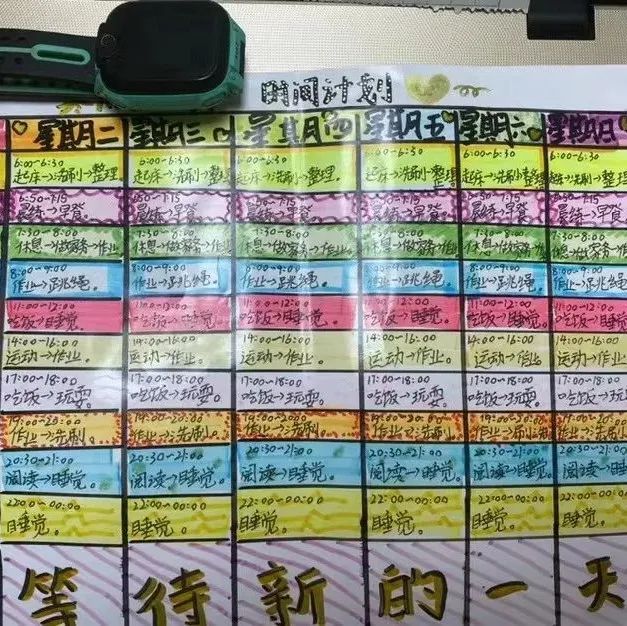 时间计划
星期二 星期三 星期四 星期五 星期六 星期日
6:00~6:30 6:00~6:30 6:00~6:30 6:00~6:30 6:00~6:30 6:00~6:30
起床→洗刷→整理 起床→洗刷→整理 起床→洗刷→整理. 起床→洗刷→整理 起床→洗刷→整理 洗刷→整理
6:50~7:15 6:50~7:15 6:50~7:15 6:50~7:15 6:50~7:15 6:50~7:15
晨练→早餐。 晨练→早餐。 晨练→早餐。 晨练→早餐。 晨练→早餐。 晨练→早餐。
7:30~8:00 7:30~8:00 7:30~8:00 7:30~8:00 7:30~8:00 7:30~8:00
休息→做家务→作业 休息→做家务→作业 休息→做家务→作业 休息→做家务→作业 休息→做家务→作 休息→做家务→作
8:00~9:00 8:00~9:00 8:00~9:00 8:00~9:00 8:00~9:00 8:00~9:00
作业→跳绳。 作业→跳绳。 作业→跳绳。 作业→跳绳。 作业→跳绳。 作业→跳绳。
11:00~12:00 11:00~12:00 11:00~12:00 11:00~12:00 11:00~12:00 11:00~12:00
吃饭→睡觉。 吃饭→睡觉。 吃饭→睡觉。 吃饭→睡觉。 吃饭→睡觉。 吃饭→睡觉
14:00~16:00 14:00~16:00 14:00~16:00 14:00~16:00 14:00~16:00 14:00~16:00
运动→作业。 运动→作业。 运动→作业。 运动→作业。 运动→作业 运动→作业。
17:00~18:00 17:00~18:00 17:00~18:00 17:00~18:00 17:00~18:00 17:00~18:00
吃饭→玩耍。 吃饭→玩耍。 吃饭→玩耍。 吃饭→玩耍。 吃饭→玩耍。 吃饭→玩
19:00~20:00 19:00~20:00 19:00~20:00 19:00~20:00 19:00~20:00 19:00~20:00
作业→洗刷。 作业→洗刷。 作业→洗刷。 作业→洗刷。 作业→洗刷 作业→洗刷
20:30~21:00 20:30~21:00 20:30~21:00 20:30~21:00 20:30~21:00 20:30~21:00
阅读→睡觉 阅读→睡觉。 阅读→睡觉。 阅读→睡觉。 阅读→睡觉。 阅读→睡觉
22:00~00:00 22:00~00:00 22:00~00:00 22:00~00:00 22:00~00:00 22:00~00:0
睡觉。 睡觉。 睡觉。 睡觉。 睡觉。 睡觉。
等待新的一天